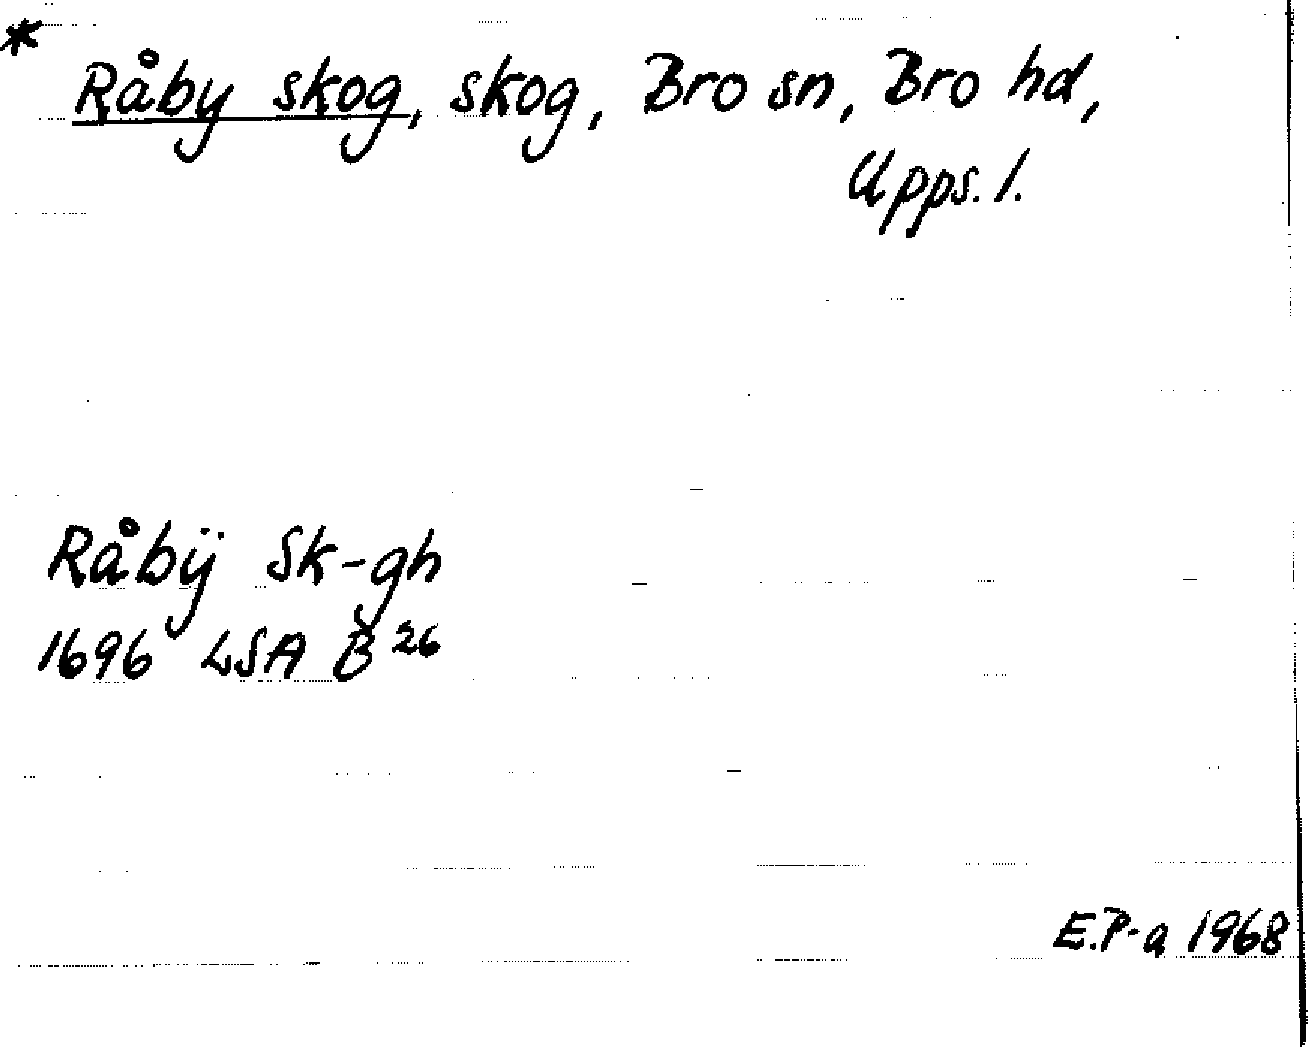 * Råby skog, skog, Bro sn, Bro hd,
Upps. l.
Råbÿ Sk-gh
1696 LSA B 26
E.P-a 1968